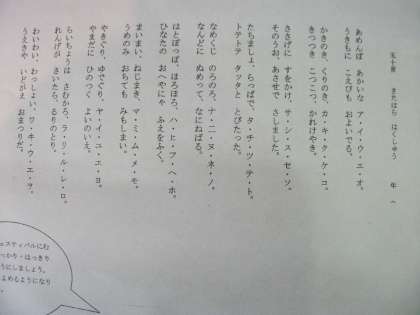 五十音 きたはら はくしゅう 年 へ
あめんぼ あかいな ア・イ・ウ・エ・オ。
うきもに こえびも およいでる。
かきのき、くりのき、カ・キ・ク・ケ・コ。
きつつき こつこつ、かれけやき。
ささげに すをかけ、サ・シ・ス・セ・ソ。
そのうお、あさせで さしました。
たちましょ、らっぱで、タ・チ・ツ・テ・ト。
トテトテ タッタと とびたった。
なめくじ のろのろ、ナ・ニ・ヌ・ネ・ノ。
なんどに ぬめって、なにねばる。
はとぽっぽ、ほろほろ、ハ・ヒ・フ・ヘ・ホ。
ひなたの おへやにゃ ふえをふく。
まいまい、ねじまき、マ・ミ・ム・メ・モ。
うめのみ おちても みもしまい。
やきぐり、ゆでぐり、ヤ・イ・ユ・エ・ヨ。
やまだに ひのつく よいのいえ。
らいちょうは さむかろ、ラ・リ・ル・レ・ロ。
れんげが さいたら、るりのとり。
わいわい、わっしょい。ワ・ヰ・ウ・エ・ヲ。
うえきや いどがえ おまつりだ。
ェスティバルにむ
っかり・はっきり
うにしましょう。
よめるようになり